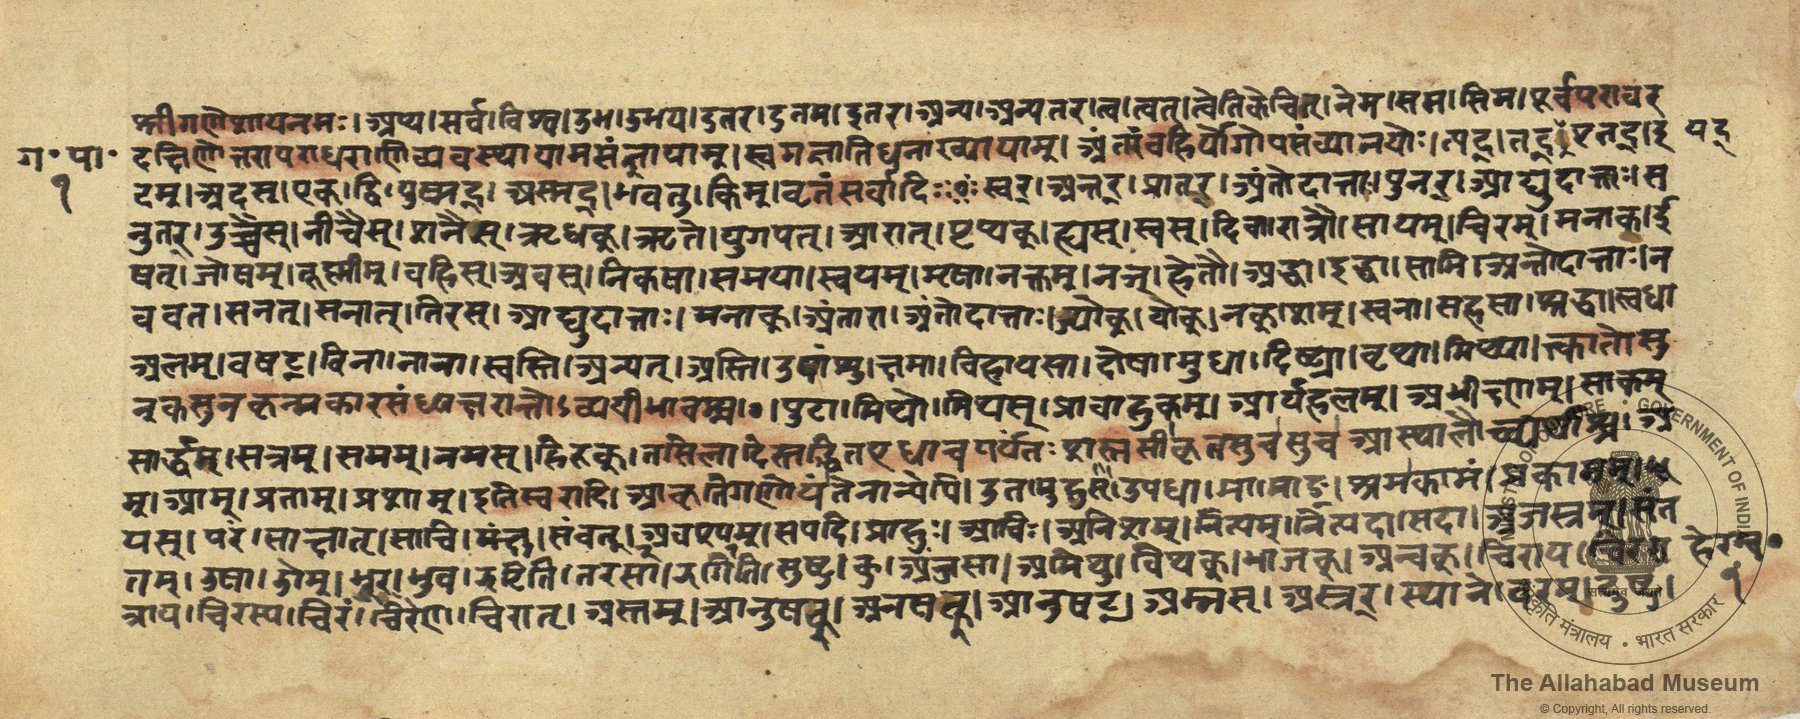 श्रीगणेशायनमः।अथ।सर्व।विश्व।उभ।उभय।डतर।डतम।इतर।अन्य।अन्यतर।त्व।त्वत्।त्वेतिकेचित्।नेम।सम।सिम।पूर्वपरावर
ग॰पा॰
१
दक्षिणोत्तरापराधराणिव्यवस्थायामसंज्ञायाम्।स्वमज्ञातिधनाख्यायाम्।अंतरंबहिर्योगोपसंव्यानयोः।त्यद्।तद्।एतद्।इ यद्
दम्।अदस्।एक।द्वि।युष्मद्।अस्मद्।भवतु।किम्।वृत्तंसर्वादिः॥०॥स्वर्।अन्तर्।प्रातर्।अंतोदात्ताः।पुनर्।आद्युदात्तः।स
नुतर्।उच्चैस्।नीचैस्।शनैस्।ऋधक्।ऋते।युगपत्।आरात्।पृथक्।ह्यस्।श्वस्।दिवा।रात्रौ।सायम्।चिरम्।मनाक्।ई
षत्।जोषम्।तूष्णीम्।बहिस्।अवस्।निकषा।समया।स्वयम्।मृषा।नक्तम्।नञ्।हेतौ।अद्धा।इद्धा।सामि।अन्तोदात्ताः।न
ववत।सनत्।सनात्।तिरस्।आद्युदात्ताः।मनाक्।अंतरा।अंतोदात्ताः।ज्योक्।योक्।नक्।शम्।स्वना।सहसा।श्रद्धा।स्वधा
अलम्।वषट्।विना।नाना।स्वस्ति।अन्यत्।अस्ति।उपांशु।क्षमा।विहायसा।दोषा।मुधा।दिष्ट्या।वृथा।मिथ्या।क्त्वातोसु
न्कसुनकृन्मकारसंध्यक्षरान्तोऽव्ययीभावश्च।०।पुटा।मिथो।मिथस्।प्रबाहुकम्।आर्यहलम्।अभीक्ष्णम्।साकम्
सार्द्धम्।सत्रम्।समम्।नमस्।हिरुक्।तसिलादिस्तद्धितएधाच्पर्यंतः शस्तसीकृत्वसुच्सुच् आस्थालौच्व्यर्थाश्च।अ
म्।आम्।प्रताम्।प्रशाम्।इतिस्वरादि।आकृतिगणोयंतेनान्येपि।उत।मुहुस्।उपधा।मा।माङ्।अम।कामं।प्रकामम्।भू
यस्।परं।साक्षात्।साचि।मंक्षु।संवत्।अवश्यम्।सपदि।प्रादुः।आविः।अनिशम्।नित्यम्।नित्यदा।सदा।अजस्रम्।संत
तम्।उषा।ओम्।भूर्।भुव।झटिति।तरसा।द्रागिति।सुष्ठु।कु।अंजसा।अमिथु।विथक्।भाजक्।अन्वक्।चिराय।चिररा हेरम्॰
१
त्राय।चिरस्य।चिरं।चिरेण।चिरात्।अस्तम्।आनुषक्।अनुषक्।आनुषट्।अम्नस्।अस्नर्।स्थाने।वरम्।दुष्ठु।
MINISTRY OF CULTURE
GOVERNMENT OF INDIA
सत्यमेव जयते
संस्कृति मंत्रालय • भारत सरकार
The Allahabad Museum
© Copyright, All rights reserved.